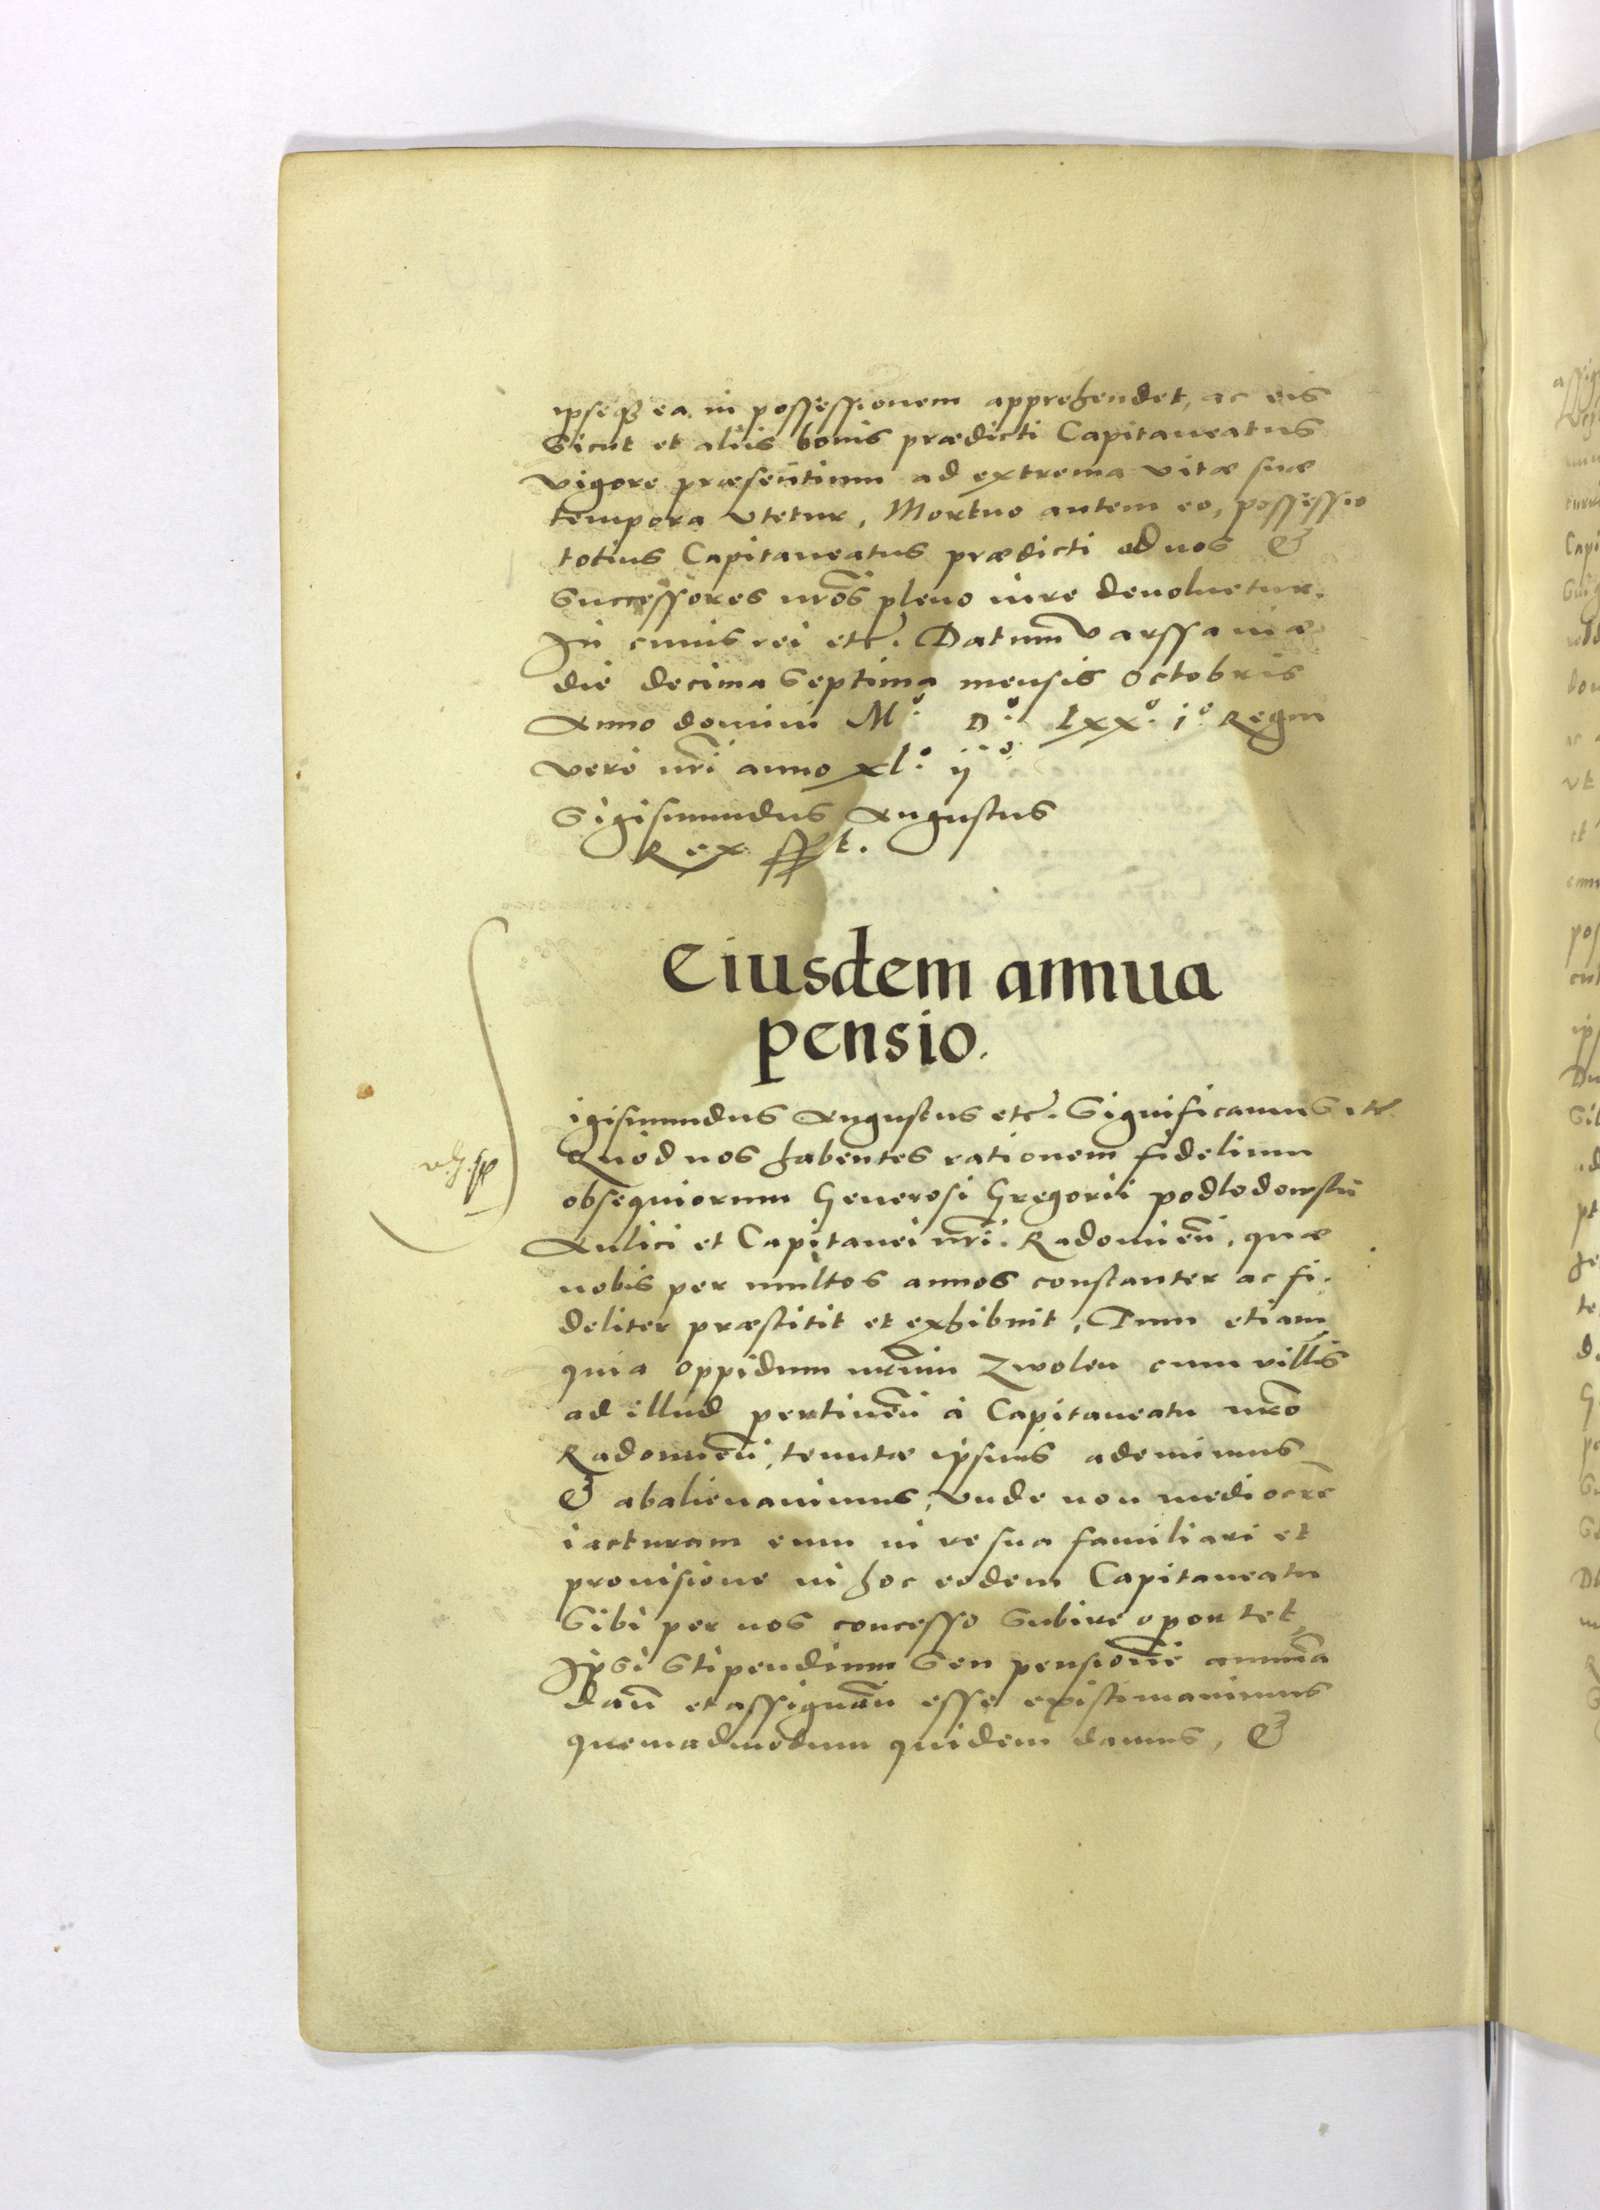 ipseq3 ea in possessionem apprehendet, ac eis
Sicut et aliis bonis prædicti Capitaneatus
vigore præsentium ad extrema vitæ suæ
tempora vtetur, Mortuo autem eo, possessio
totius Capitaneatus prædicti ad nos &
Successores nr̃os pleno iure deuoluetur.
In cuius rei etc. Datum varssauiæ
die decima Septima mensis Octobris
Anno domini M.° D.° Lxx.° i.° Regni
vero nr̃i anno xl.° ij°
Sigismundus Augustus
Rex sst.
Eiusdem annua
pensio.
igismundus Augustus etc. Significamus etc.
Quod nos habentes rationem fidelium
obsequiorum Generosi Gregorii podlodowski
Aulici et Capitanei nr̃i. Radomieñ, quæ
nobis per multos annos constanter ac fi-
deliter præstitit et exhibuit, Tum etiam
quia oppidum nr̃um Zwolen cum villis
ad illud pertineñ à Capitaneatu nr̃o
Radomieñ, tenutæ ipsius ademimus
& abalienauimus, vnde non mediocrẽ
iacturam eum in re sua familiari et
prouisione in hoc eodem Capitaneatu
Sibi per nos concesso Subire oportet,
Ipsi Stipendium Seu pensionẽ annuã
dañ et assignañ esse existimauimus
quemadmodum quidem damus, &